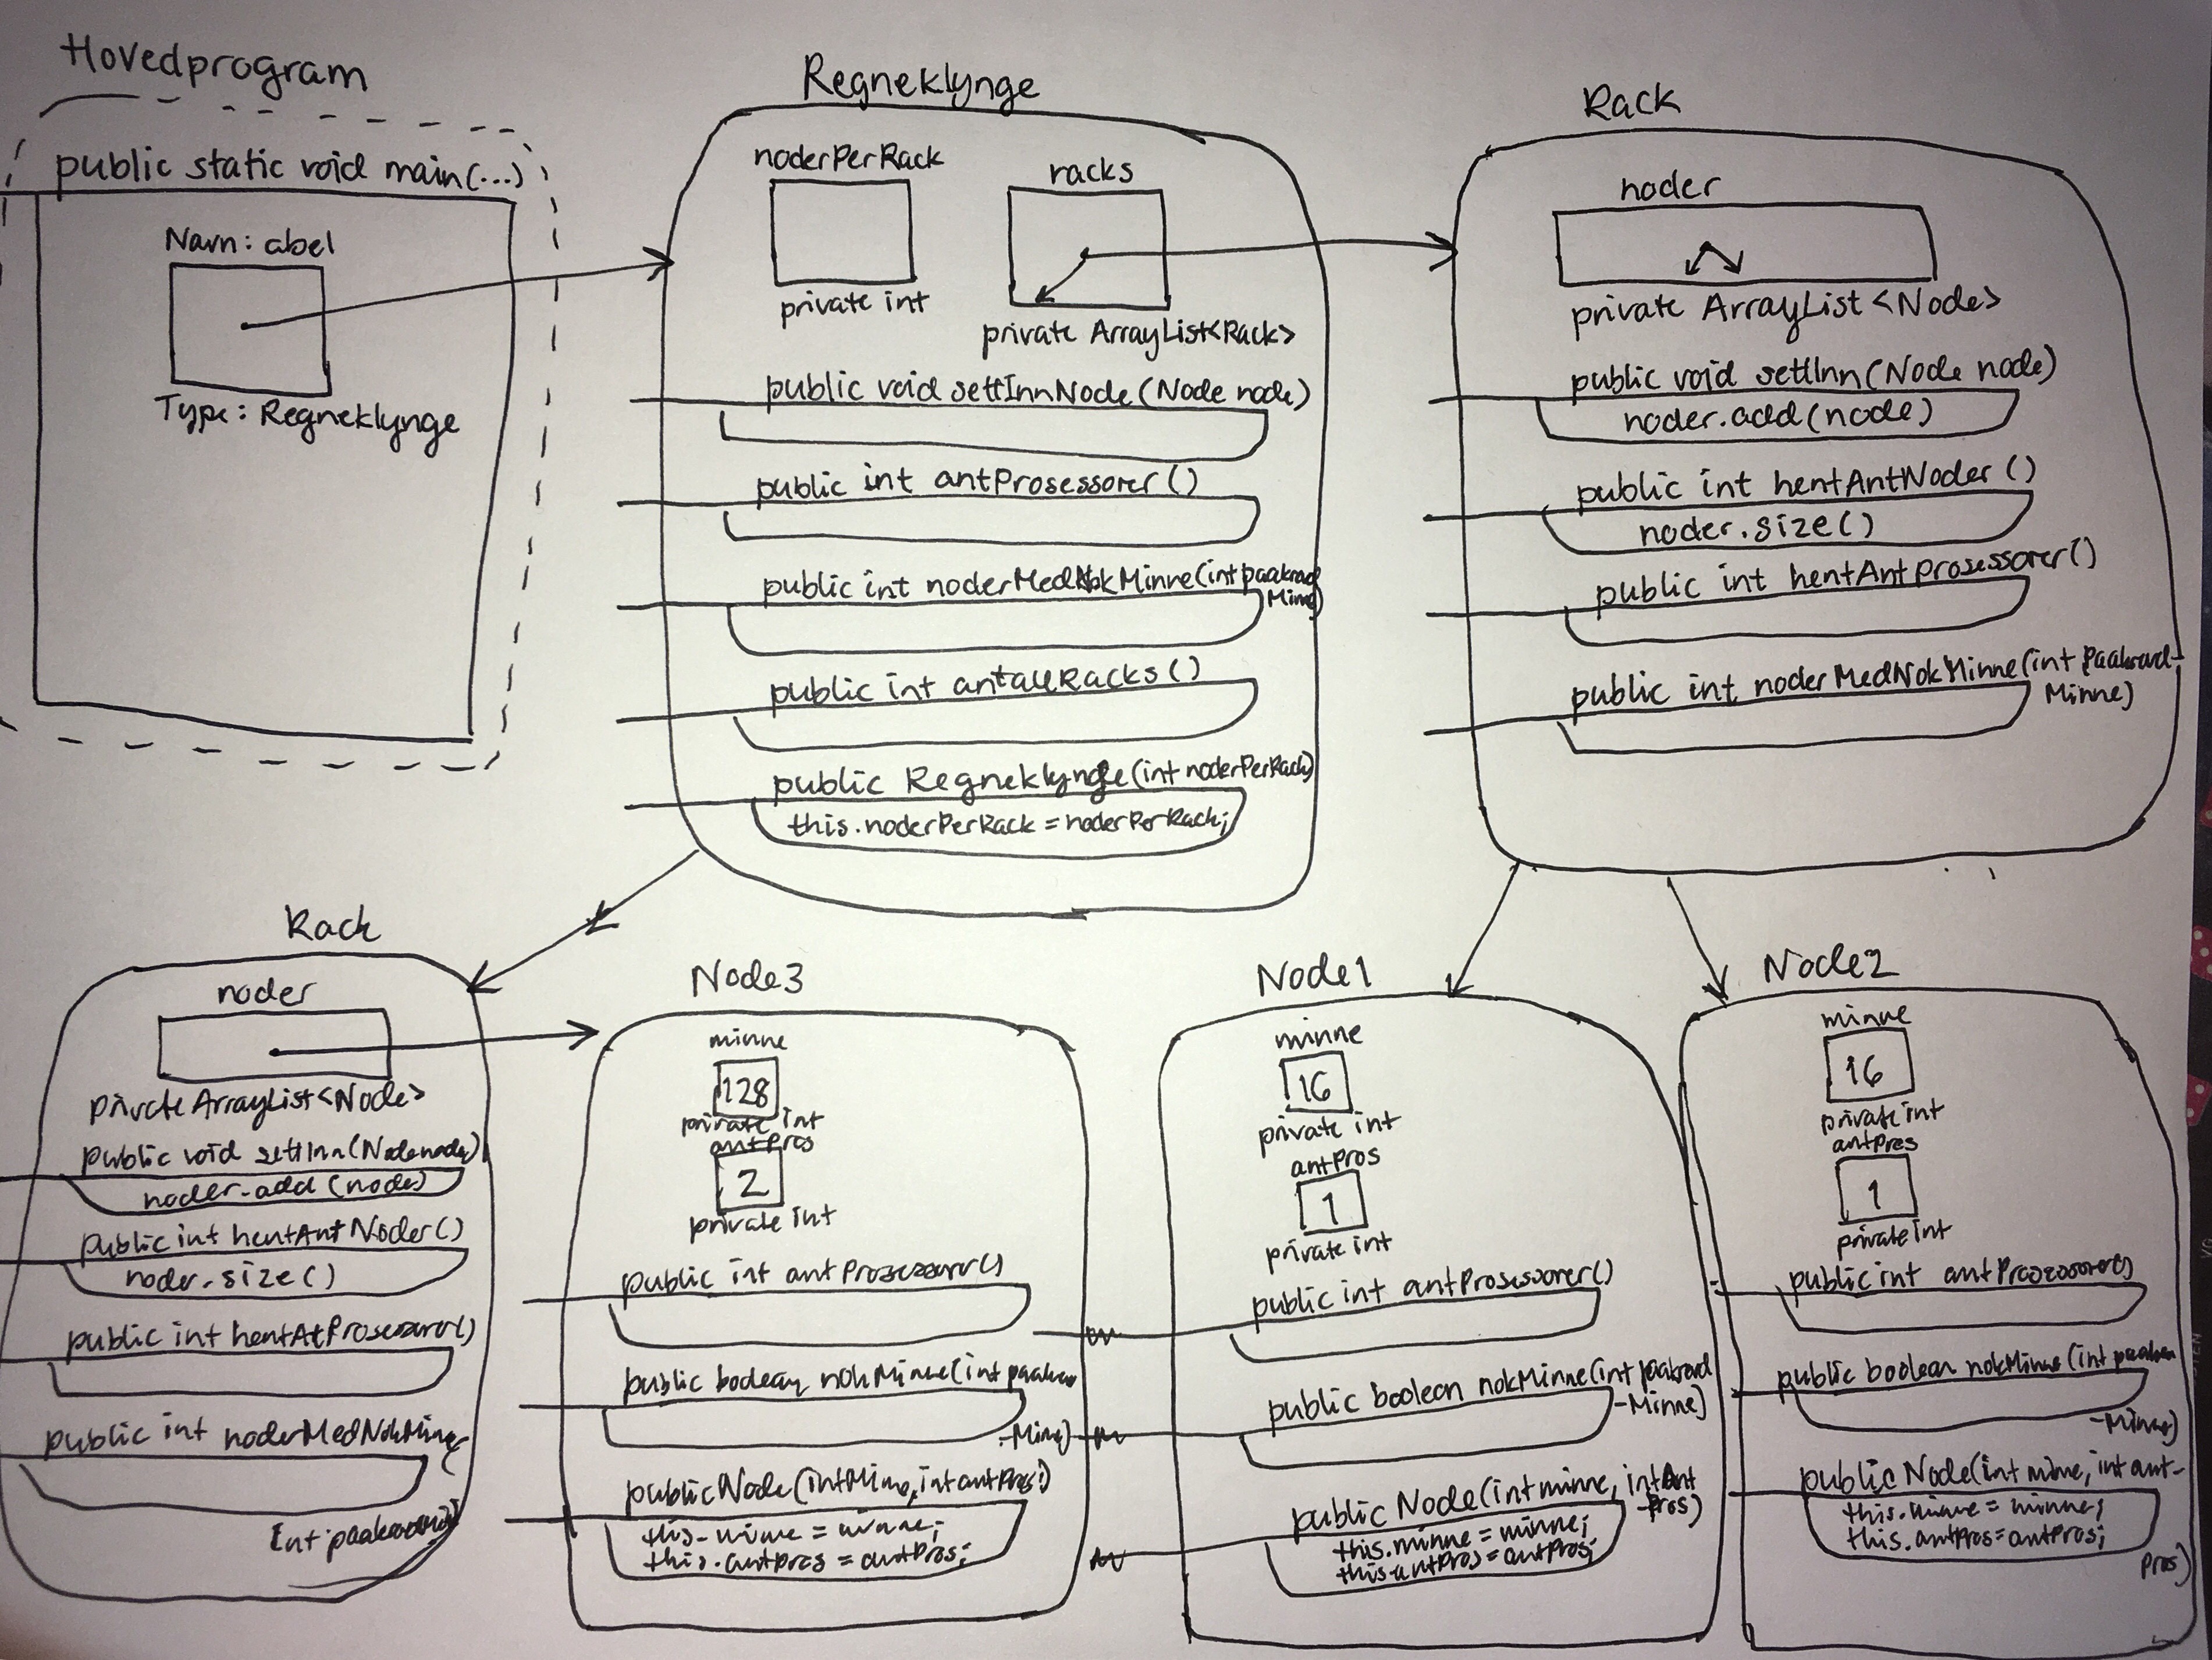 Hovedprogram
public static void main(...)
Navn: abel
Type: Regneklynge
Regneklynge
noderPerRack
private int
racks
private ArrayList<Rack>
public void settInnNode(Node node)
public int antProsessorer()
public int noderMedNokMinne(int paakrad
Minne)
public int antallRacks()
public Regneklynge(int noderPerRack)
this.noderPerRack = noderPerRack;
Rack
noder
private ArrayList<Node>
public void settInn(Node node)
noder.add(node)
public int hentAntNoder()
noder.size()
public int hentAntProsessorer()
public int noderMedNokMinne(int paakrad-
Minne)
Rack
noder
private ArrayList<Node>
public void settInn(Node node)
noder.add(node)
public int hentAntNoder()
noder.size()
public int hentAtProsessorer()
public int noderMedNokMinne(
Node3
minne
128
private int
antPros
2
private int
public int antProsessorer()
public boolean nokMinne(int
-Minne)
public Node(int Minne, int antPros)
this.minne = minne;
this.antPros = antPros;
Node1
minne
16
private int
antPros
1
private int
public int antProsessorer()
public boolean nokMinne(int paakrad
-Minne)
public Node(int minne, int Ant
Pros)
this.minne = minne;
this.antPros = antPros;
Node2
minne
16
private int
antPros
1
private int
public int antProsessorer()
public boolean nokMinne(int
-Minne)
public Node(int minne, int ant-
this.minne = minne;
this.antPros = antPros;
Pros)